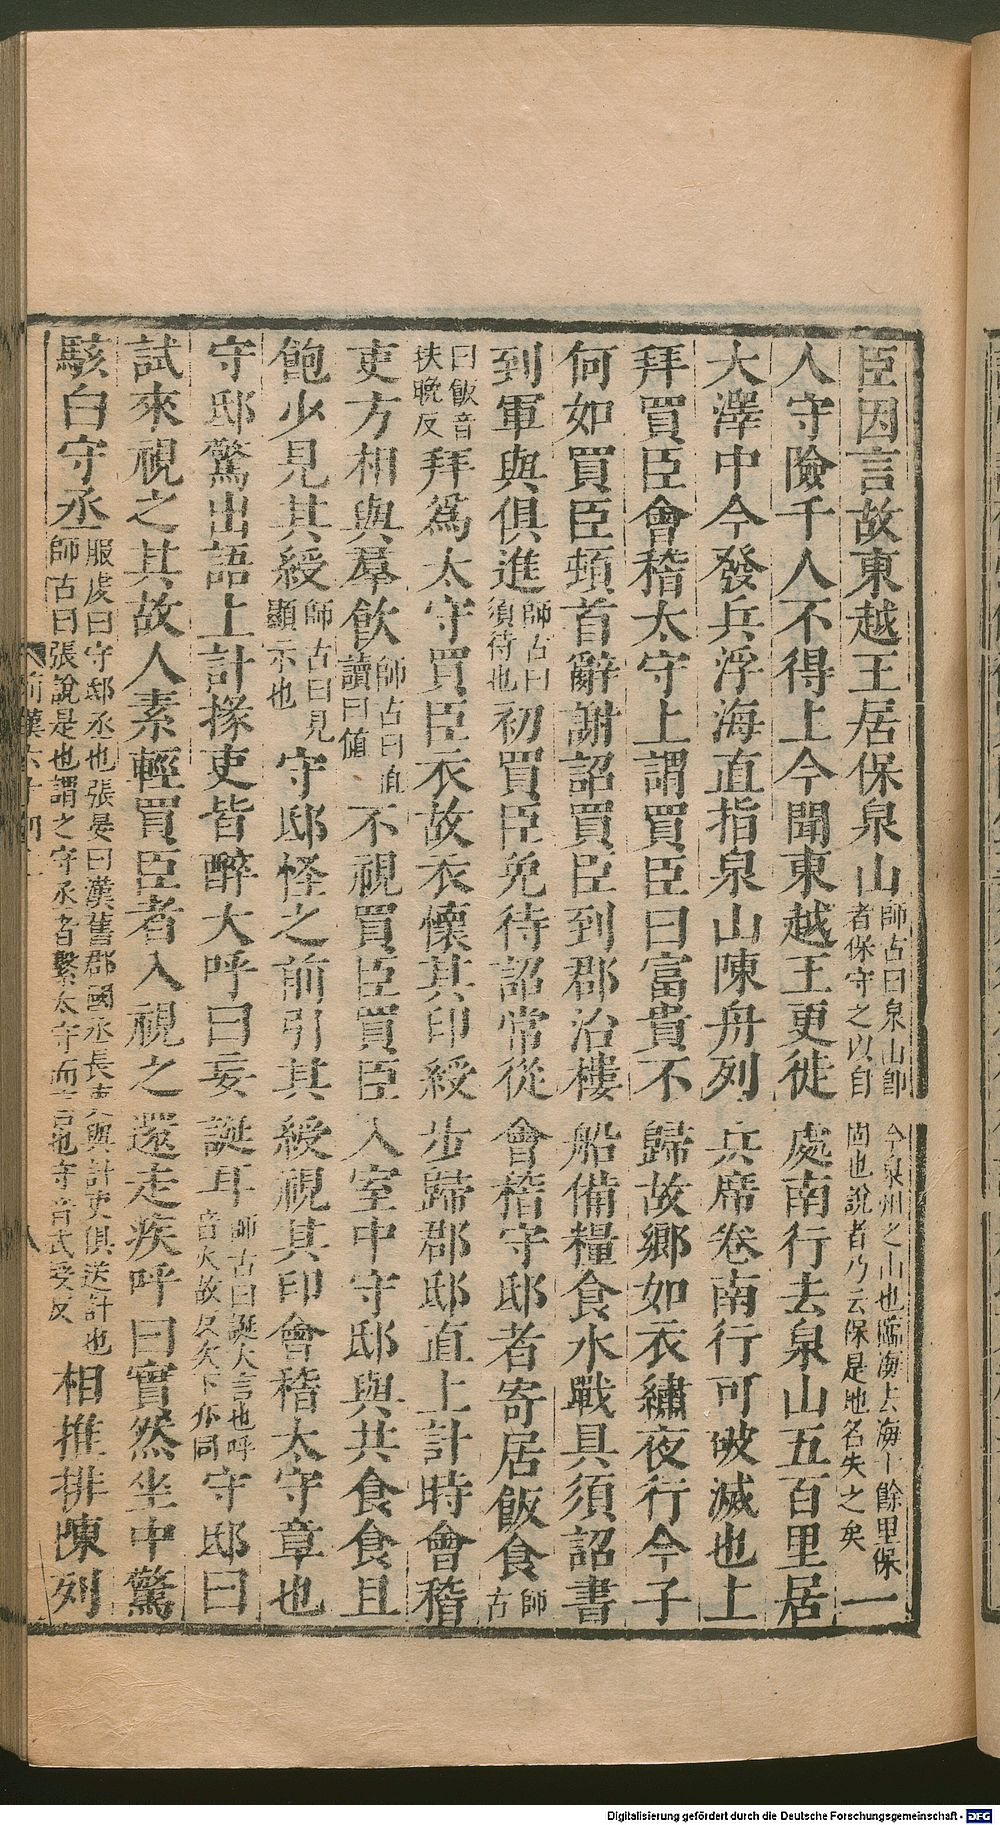 臣因言故東越王居保泉山師古曰泉山即今泉州之山也臨海去海十餘里保者保守之以自固也說者乃云保是地名失之矣一
人守險千人不得上今聞東越王更徙處南行去泉山五百里居
大澤中今發兵浮海直指泉山陳舟列兵席卷南行可破滅也上
拜買臣會稽太守上謂買臣曰富貴不歸故鄉如衣繡夜行今子
何如買臣頓首辭謝詔買臣到郡治樓船備糧食水戰具須詔書
到軍與俱進師古曰須待也初買臣免待詔常從會稽守邸者寄居飯食師古
曰飲音扶晚反拜爲太守買臣衣故衣懷其印綬步歸郡邸直上計時會稽
吏方相與羣飲師古曰直讀曰値不視買臣買臣入室中守邸與共食食且
飽少見其綬師古曰見顯示也守邸怪之前引其綬視其印會稽太守章也
守邸驚出語上計掾吏皆醉大呼曰妄誕耳師古曰誕大言也呼音火故反次下亦同守邸曰
試來視之其故人素輕買臣者入視之還走疾呼曰實然坐中驚
駭白守丞服虔曰守邸丞也張晏曰漢舊郡國丞長吏與計吏俱送計也師古曰張說是也謂之守丞者繫太守而言也守音式受反相推排陳列
前漢六十四上
八
Digitalisierung gefördert durch die Deutsche Forschungsgemeinschaft - DFG